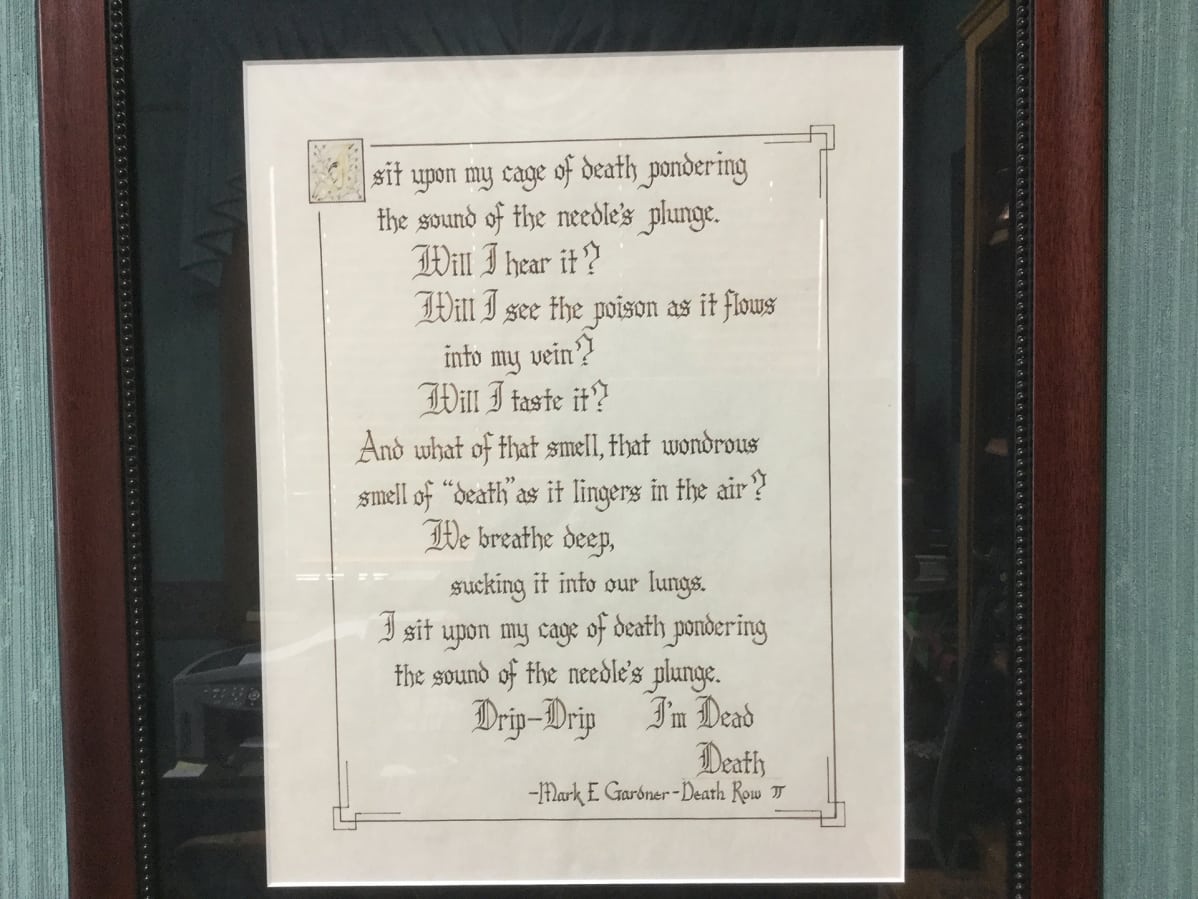 I sit upon my cage of death pondering
the sound of the needle's plunge.
Will I hear it?
Will I see the poison as it flows
into my vein?
Will I taste it?
And what of that smell, that wondrous
smell of "death" as it lingers in the air?
We breathe deep,
sucking it into our lungs.
I sit upon my cage of death pondering
the sound of the needle's plunge.
Drip-Drip I'm Dead
Death
-Mark E Gardner-Death Row